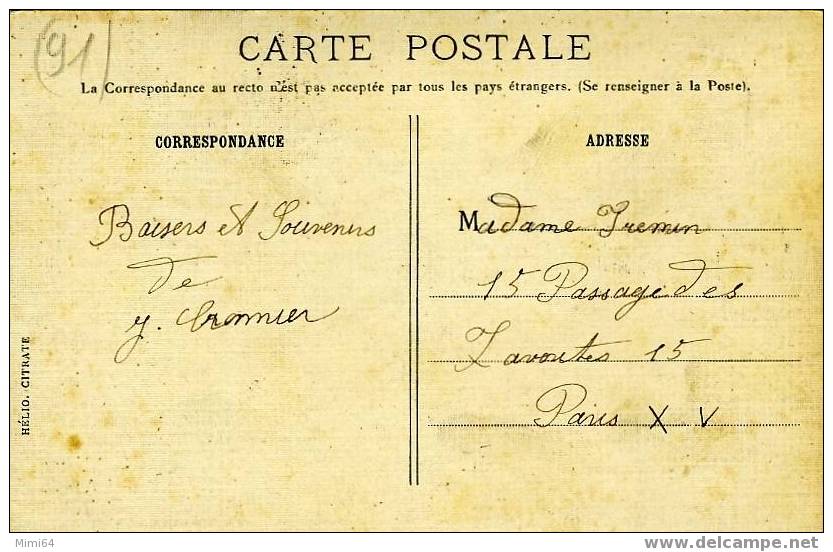 (91)
CARTE POSTALE
La Correspondance au recto n'est pas acceptée par tous les pays étrangers. (Se renseigner à la Poste).
CORRESPONDANCE
Baisers et Souvenirs
de
y.
ADRESSE
Madame
15 Passage des
15
Paris X V
HÉLIO. CITRATE
Mimi64
www.delcampe.net